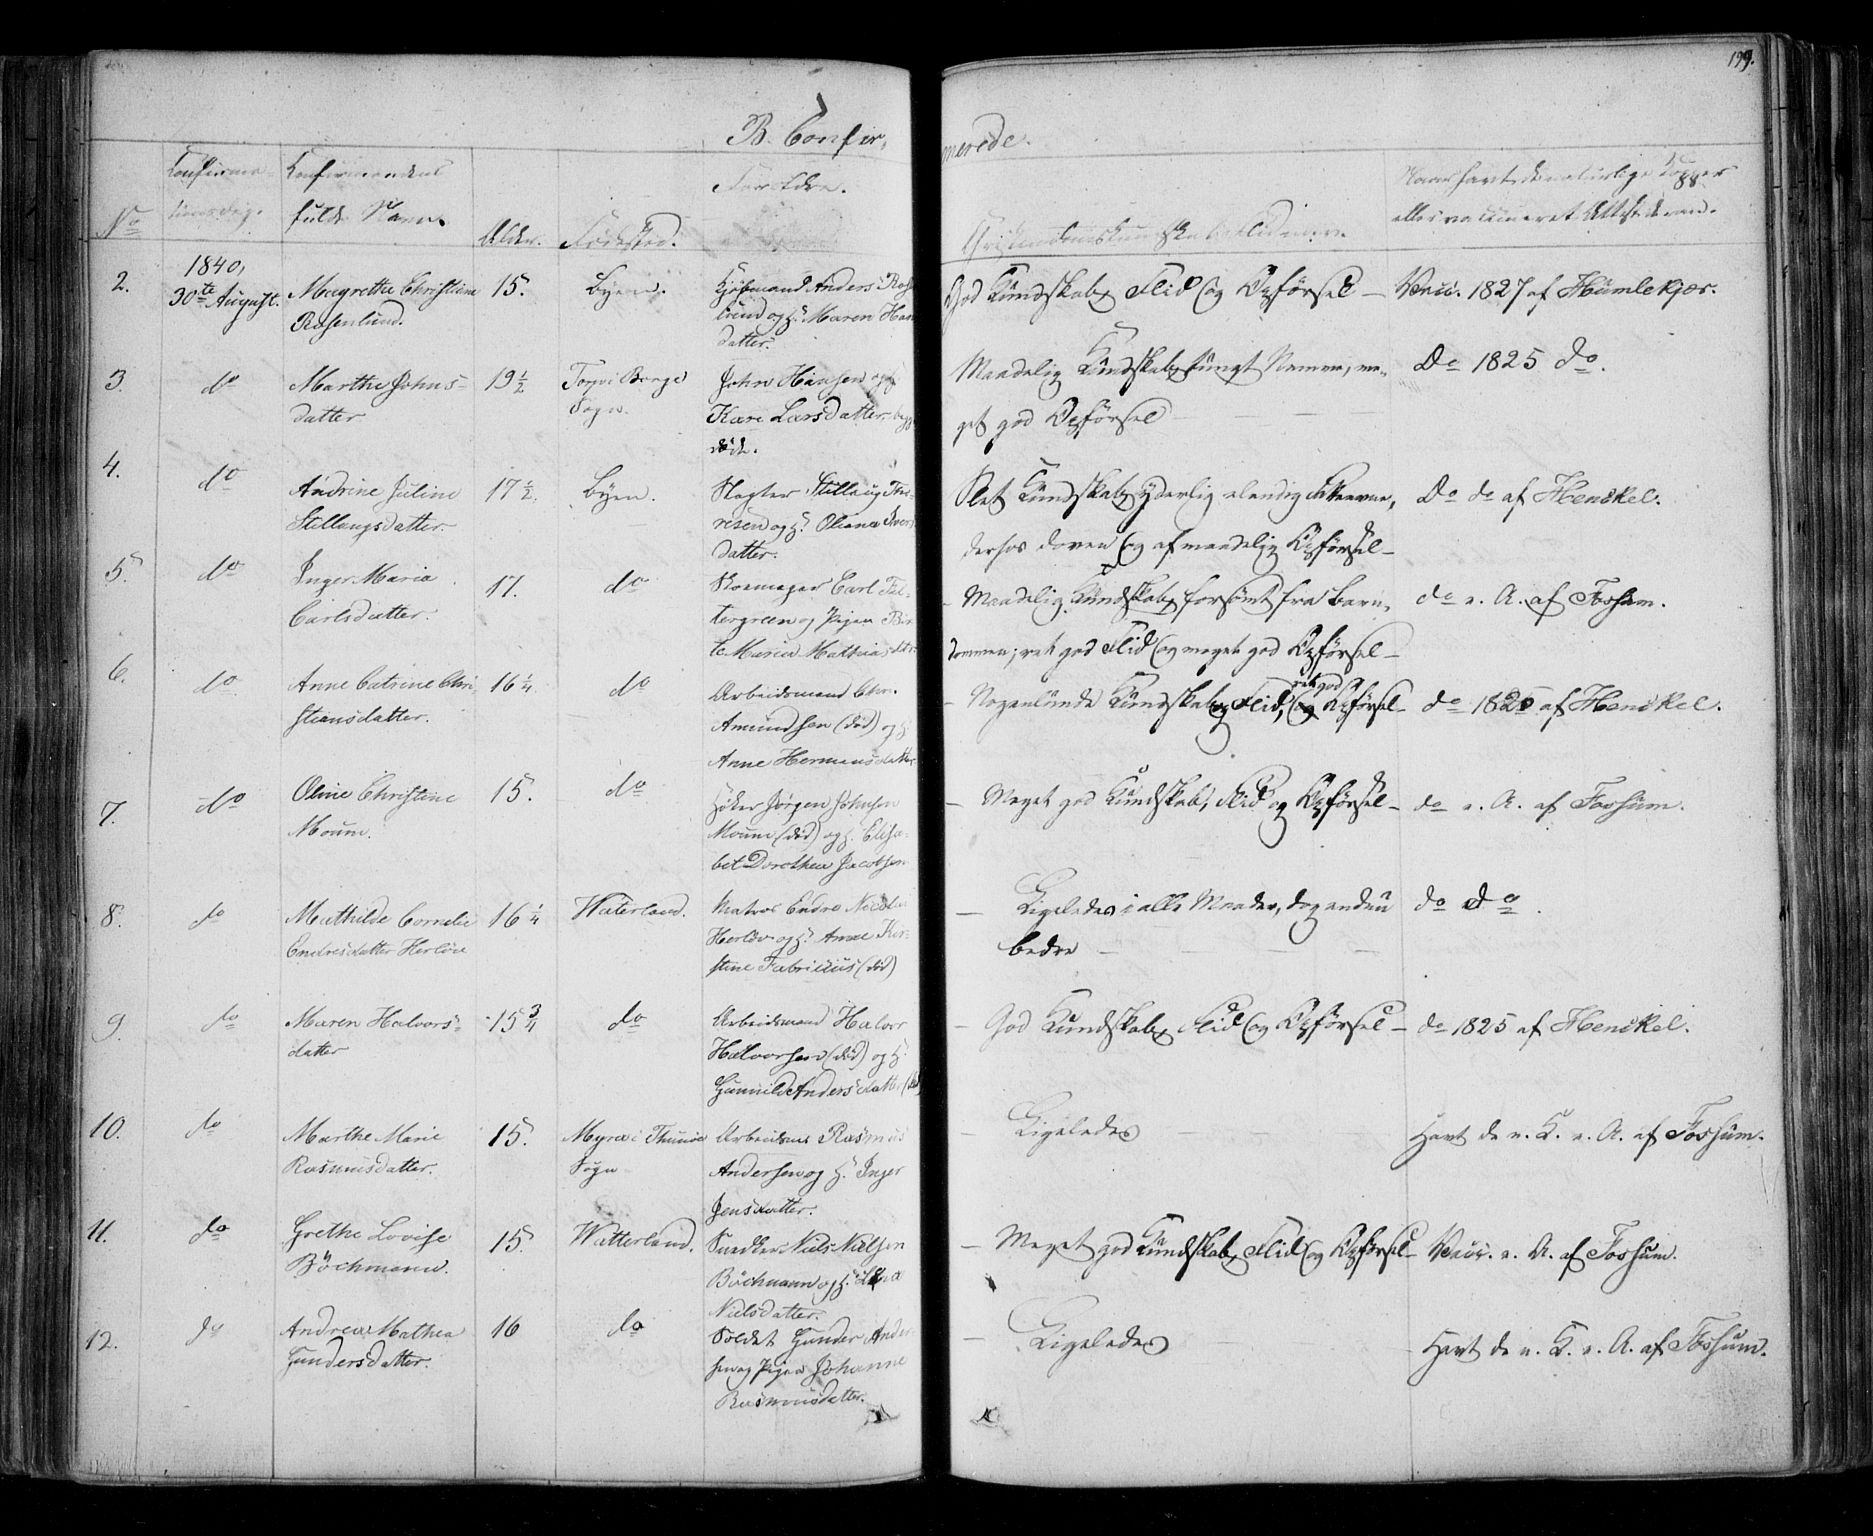 199.
B. Confir,
merede.
No
Confirma-
tions Dag.
Confirmandens
fulde Navn.
Alder.
Födested.
Forældre.
Christendomskundskab Flid
Naar havt de naturlige Kopper
eller vaccineret Attest derom.
2.
1840,
30te August.
Magrethe Christiane
Rosenlund.
15.
Byen.
Kjöbmand Anders Ros
lund og H. Maren Han
datter.
God Kundskab, Flid og Opförsel –
Vacc. 1827 af Hümlekjær.
3.
do
Marthe Johns-
datter
19 1/2
Torp i Borge
Sogn.
John Hansen og H
Kari Larsdatter begge
döde.
Maadelig Kundskab, tungt Nemme, me-
get god Opförsel
Do 1825 do.
4.
do
Andrine Juline
Stillaugsdatter.
17 1/2.
Byen.
Slagter Stillaug Tho-
resen og H. Oliana Iver
datter.
Slet Kundskab, yderlig elendig Evne,
derhos doven og af maadelig Opförsel –
Do do af Henckel.
5.
do
Inger Maria
Carlsdatter.
17.
do
Skomager Carl Fet-
tergreen og Pigen Bir
te Maria Mathiasdtr.
– Maadelig Kundskab, forsömt fra Barn-
dommen; ret god Flid og meget god Opförsel –
do u. A. af Fossum.
6.
do
Anne Catrine Chri
stiansdatter.
16 1/4
do
Arbeidsmand Chr.
Amundsen (död) og H
Anne Hermansdatter
– Nogenlunde Kundskab og Flid, ret god Opförsel –
do 1826 af Henckel.
7.
do
Oline Christine
Moum.
15.
do
Höker Jörgen Johnsen
Moum (död) og H. Elisa-
bet Dorothea Jacobsen
– Meget god Kundskab, Flid og Opförsel –
do u. A. af Fossum.
8.
do
Mathilde Cornelie
Endresdatter Herlöv
16 1/4
Waterland.
Matros Endre Nicolai
Herlöv og H. Anne Kir-
stine Fabricius (död)
– Ligeledes i alle Maader, dog endnu
bedre –
do do.
9.
do
Maren Halvors-
datter
15 3/4
do
Arbeidsmand Halvor
Halvorsen (död) og H.
Gunnild Andersdatter (död)
– God Kundskab, Flid og Opförsel –
do 1825 af Henckel.
10.
do
Marthe Marie
Rasmusdatter.
15.
Myra i Thunöe
Sogn
Arbeidsm Rasmus
Andersen og H. Inger
Jensdatter.
– Ligeledes –
Havt de n. K. u. A. af Fossum.
11.
do
Grethe Lovise
Böchmann.
15.
Watterland.
Snedker Niels Nielsen
Böchmann og H.
Nielsdatter.
– Meget god Kundskab, Flid og Opförsel –
Vacc. u. A. af Fossum.
12.
do
Andrea Mathea
Gundersdatter.
16
do
Soldat Gunder Ander
sen og Pigen Johanne
Rasmusdatter.
– Ligeledes
– Havt de n. K. u. A. af Fossum.